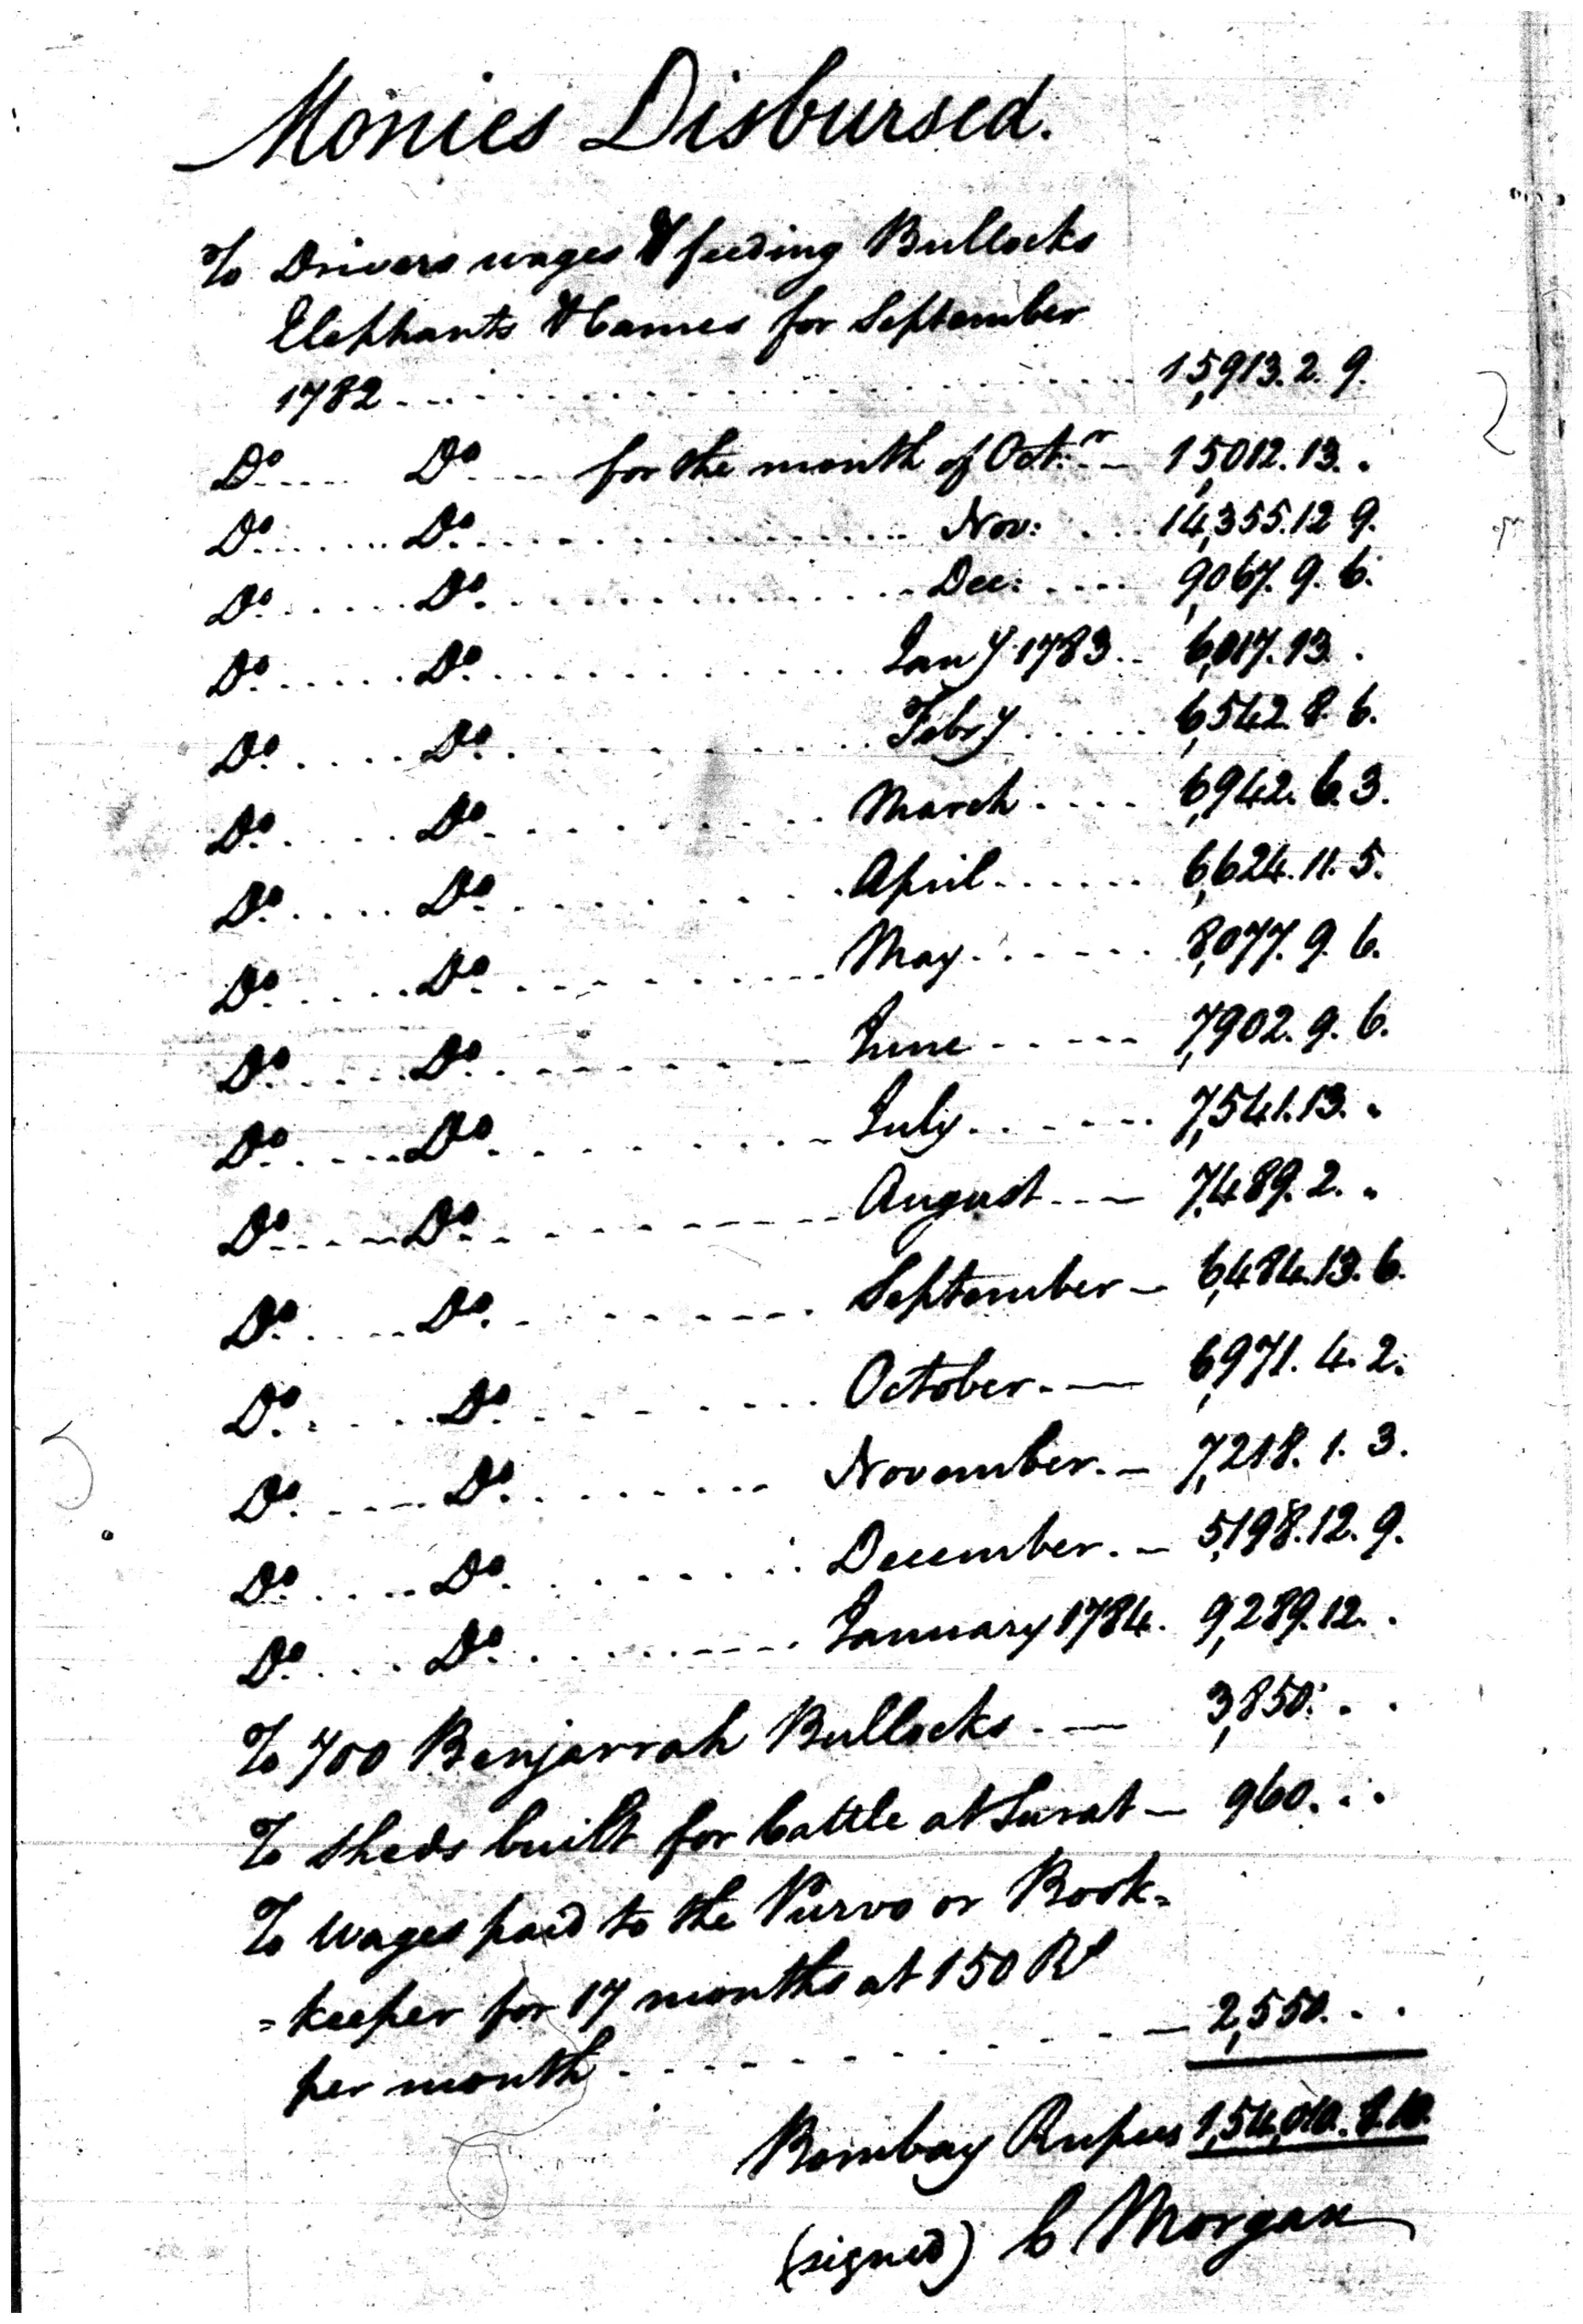 Monies Disbursed.
To Drivers wages & feeding Bullocks
Elephants & Cames for September
1782 - - - - - - 15,913. 2. 9.
Do. .... Do. .... for the month of Octr. - 15,012. 13. .
Do. .... Do. .... Nov: ... 14,355. 12 9.
Do. .... Do. .... Dec: .... 9,067. 9. 6.
Do. .... Do. .... Jany. 1783 .. 6,017. 13 .
Do. .... Do. .... Febry .... 6,542. 8. 6.
Do. .... Do. .... March .... 6,942. 6. 3.
Do. .... Do. .... April .... 6,624. 11. 5.
Do. .... Do. .... May .... 8,077. 9. 6.
Do. .... Do. .... June .... 7,902. 9. 6.
Do. .... Do. .... July .... 7,541. 13. .
Do. .... Do. .... August - - - 7,489. 2. .
Do. .... Do. .... September - 6,484. 13. 6.
Do. .... Do. .... October. — 6,971. 4. 2.
Do. .... Do. .... November. - 7,218. 1. 3.
Do. .... Do. .... December. - 5,198. 12. 9.
Do. .... Do. .... January 1784. 9,289. 12. .
To 700 Benjarrah Bullocks. — 3,850. . .
To Sheds built for Cattle at Surat — 960. . .
To Wages paid to the Purvo or Book=
=keeper for 17 months at 150 Rs
per month - - - - - - 2,550. . .
Bombay Rupees 1,54,010. 8. 10.
(signed) C Morgan